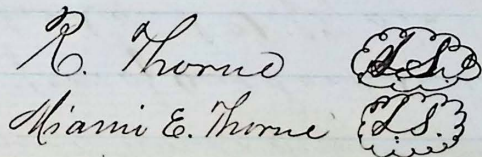 R. Thorne L.S.
Miami E. Thorne L.S.